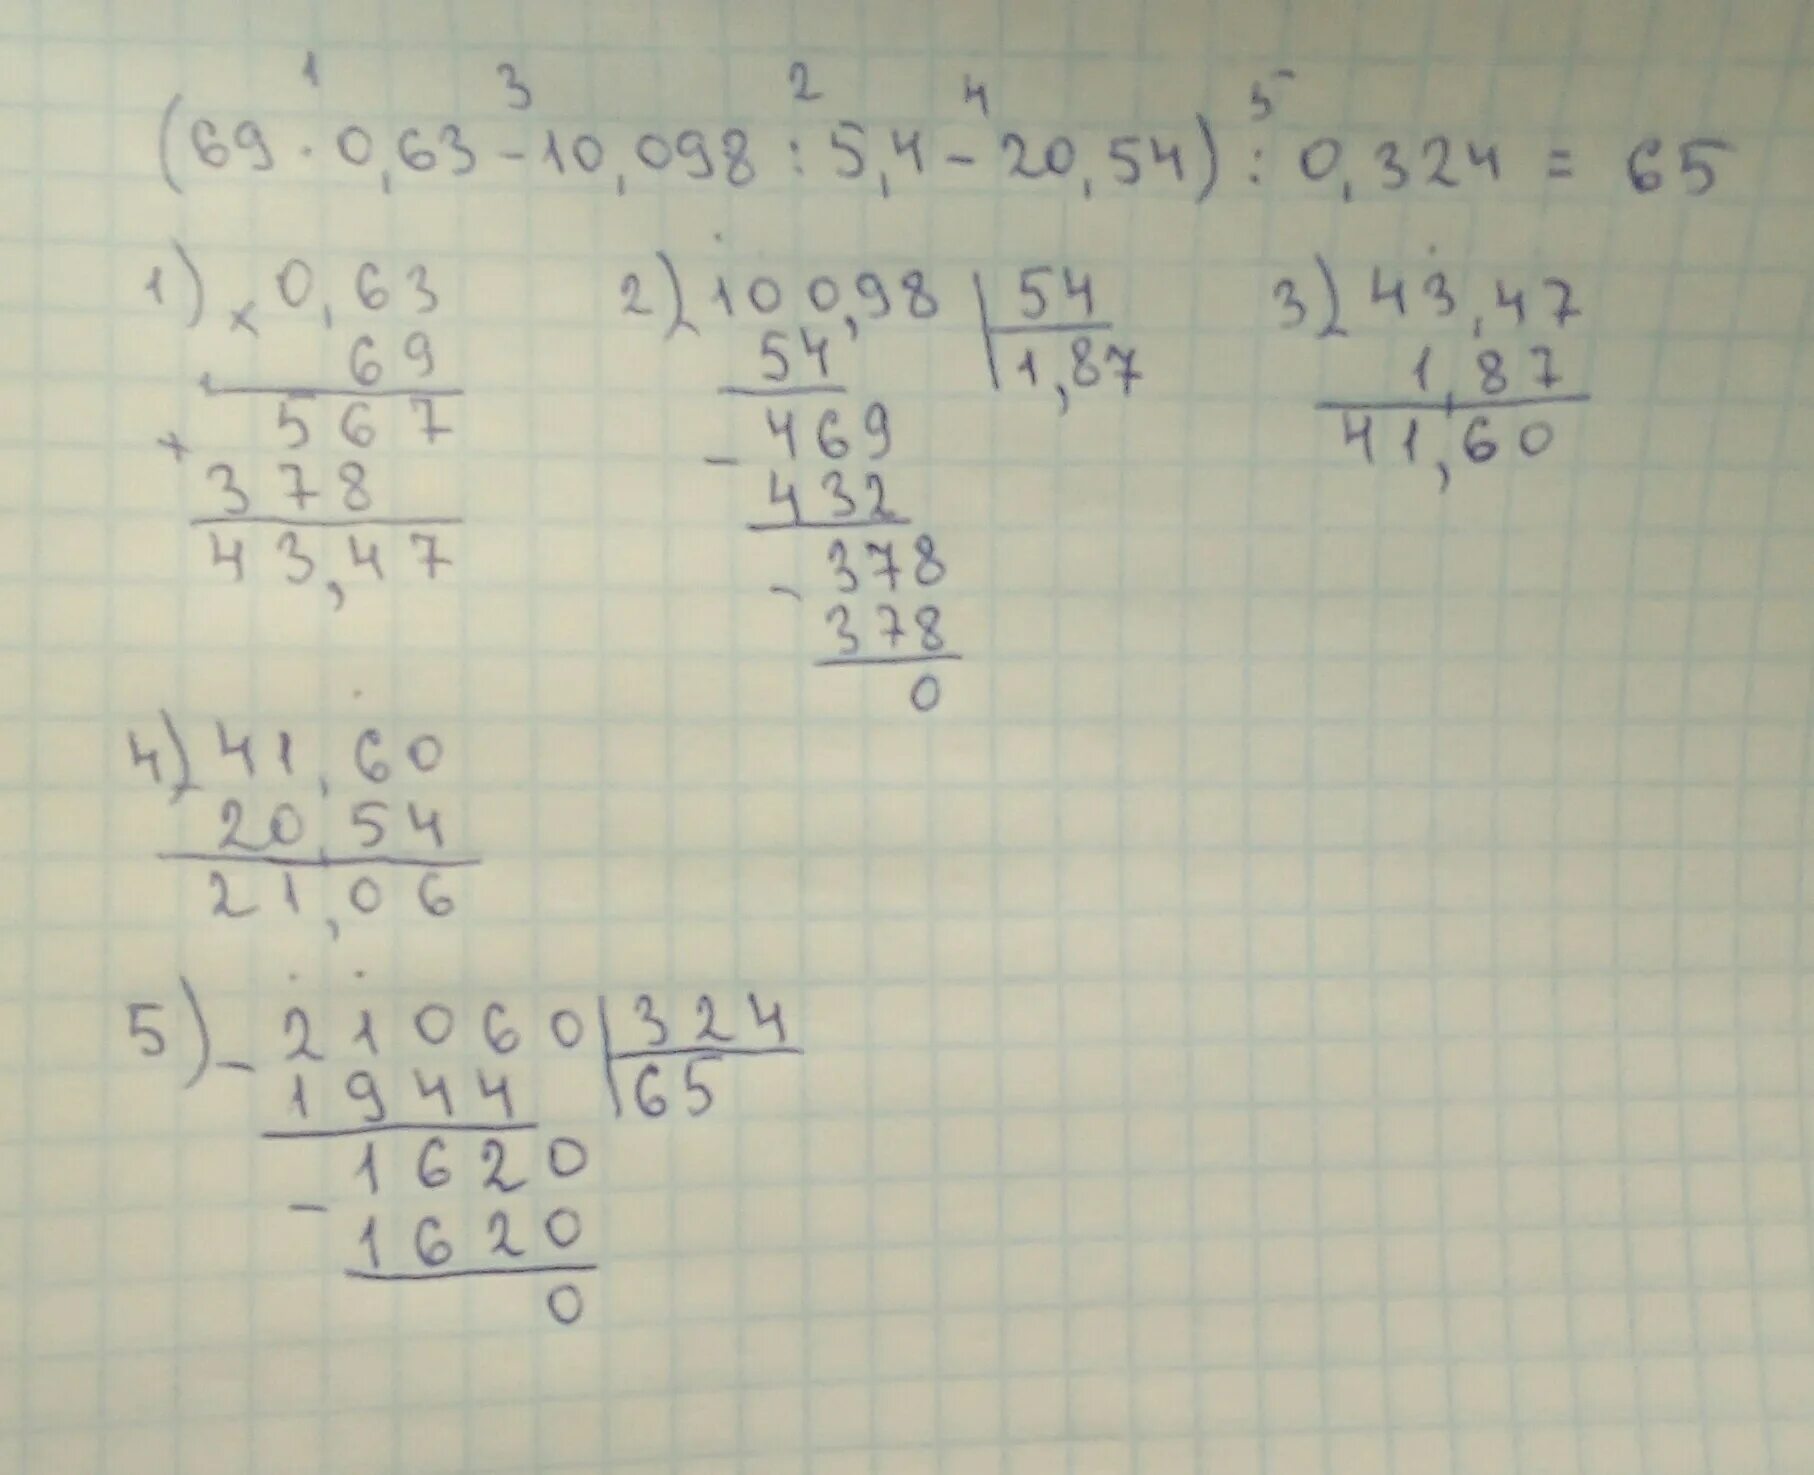 1 3 2 4 5
(69 · 0,63 - 10,098 : 5,4 - 20,54) : 0,324 = 65
1) × 0,63
69
+ 567
378
43,47
2) 100,98 | 54
54 | 1,87
- 469
432
- 378
378
0
3) 43,47
1,87
41,60
4) 41,60
20,54
21,06
5) - 21060 | 324
1944 | 65
- 1620
1620
0